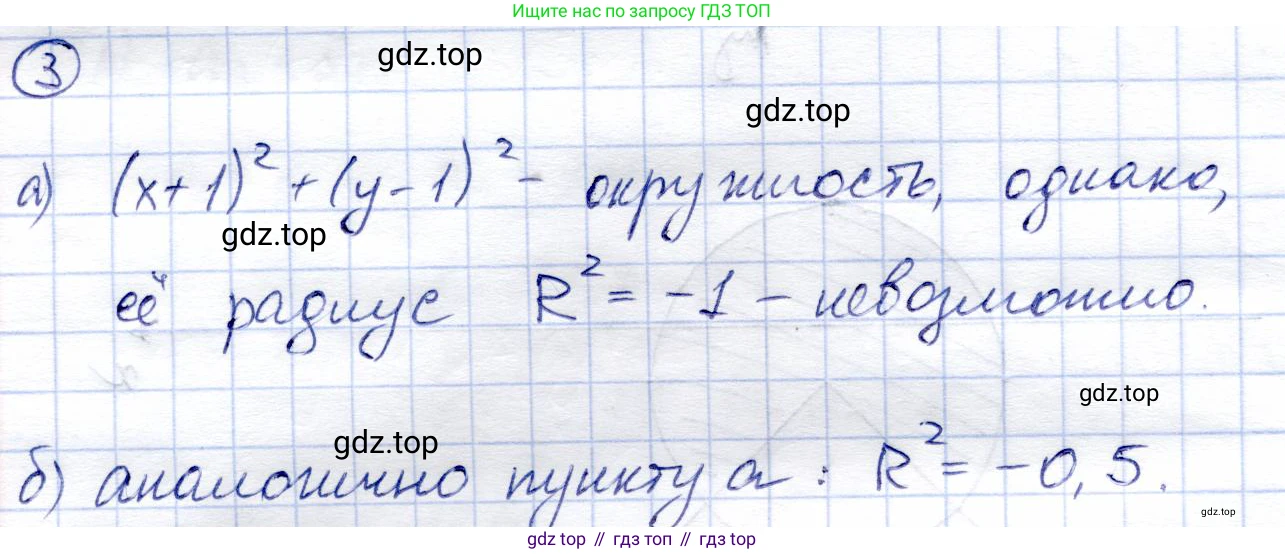 Ищите нас по запросу ГДЗ ТОП
3
gdz.top
gdz.top
а) (x+1)² + (y-1)² - окружность, однако,
gdz.top
её радиус R² = -1 - невозможно.
gdz.top
gdz.top
б) аналогично пункту а : R² = -0,5.
gdz.top
gdz top // гдз топ // gdz top